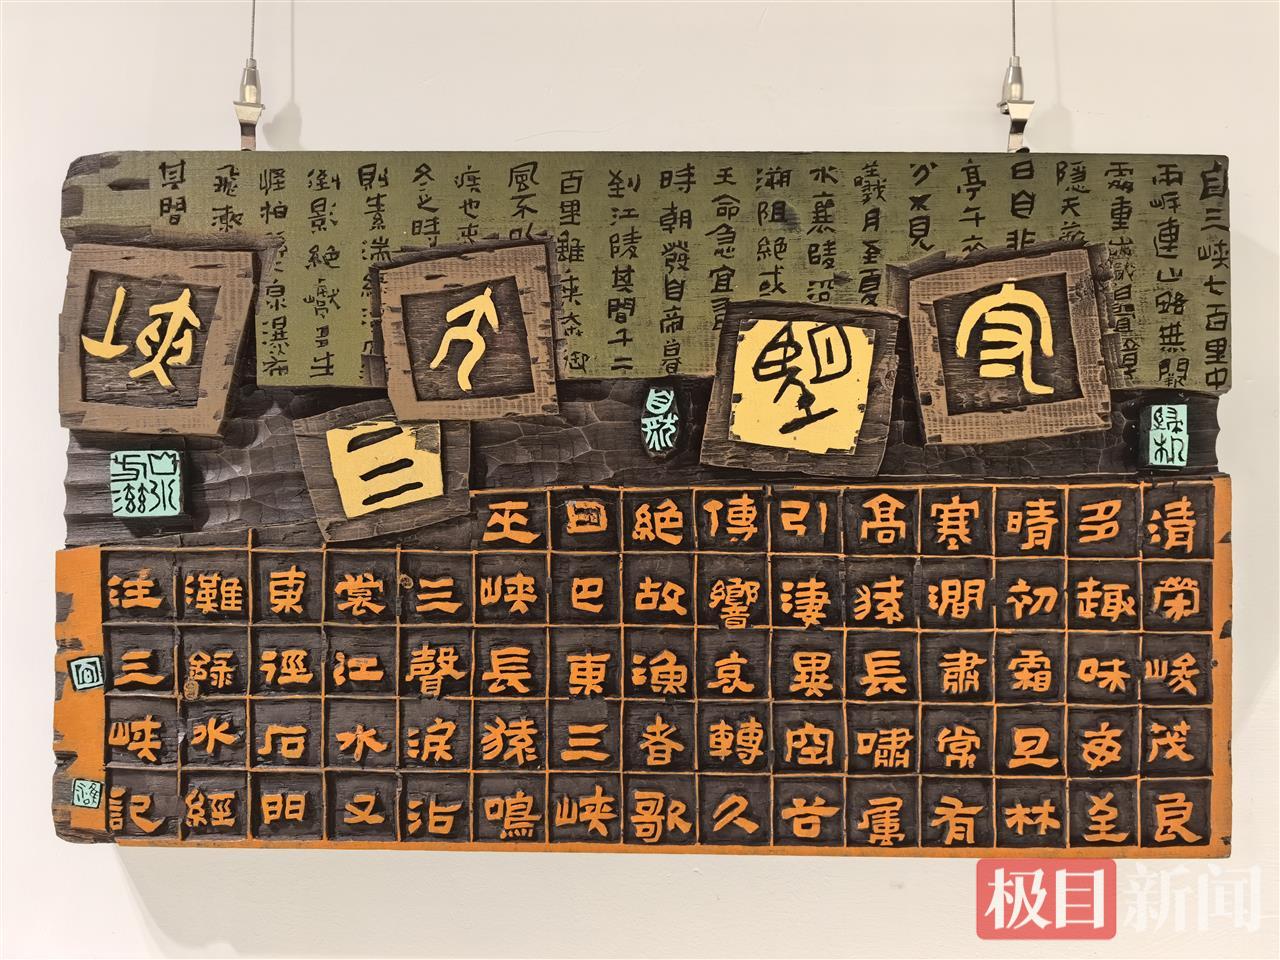 自三峽七百里中
兩岸連山略無闕
處重巖疊嶂
隱天蔽
日自非
亭午夜
分不見
曦月至夏
水襄陵沿
溯阻絕或
王命急宣
時朝發自帝
到江陵其間千二
百里雖乘奔御
風不以
疾也
冬之時
則素湍綠
倒影絕巘多生
怪柏 泉瀑布
飛漱
其間
守望大三峽
自然
清榮峻茂良
多趣味每至
晴初霜旦林
寒澗肅常有
高猿長嘯屬
引淒異空谷
傳響哀轉久
絕故漁者歌
曰巴東三峽
巫峽長猿鳴
三聲淚沾
裳江水又
東徑石門
灘錄水經
注三峽記
极目新闻